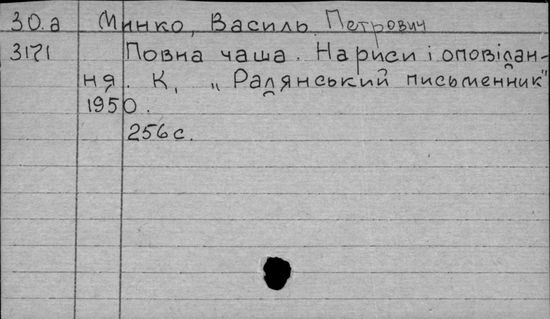 30.а Минко, Василь Петрович
3171 Повна чаша. Нариси і оповідан-
ня. К, „Радянський письменник"
1950.
256 с.